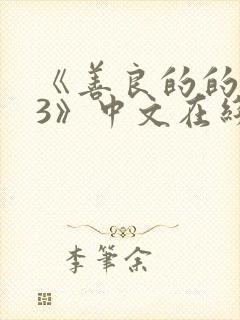 《善良的的
3》中文在线
李筆余